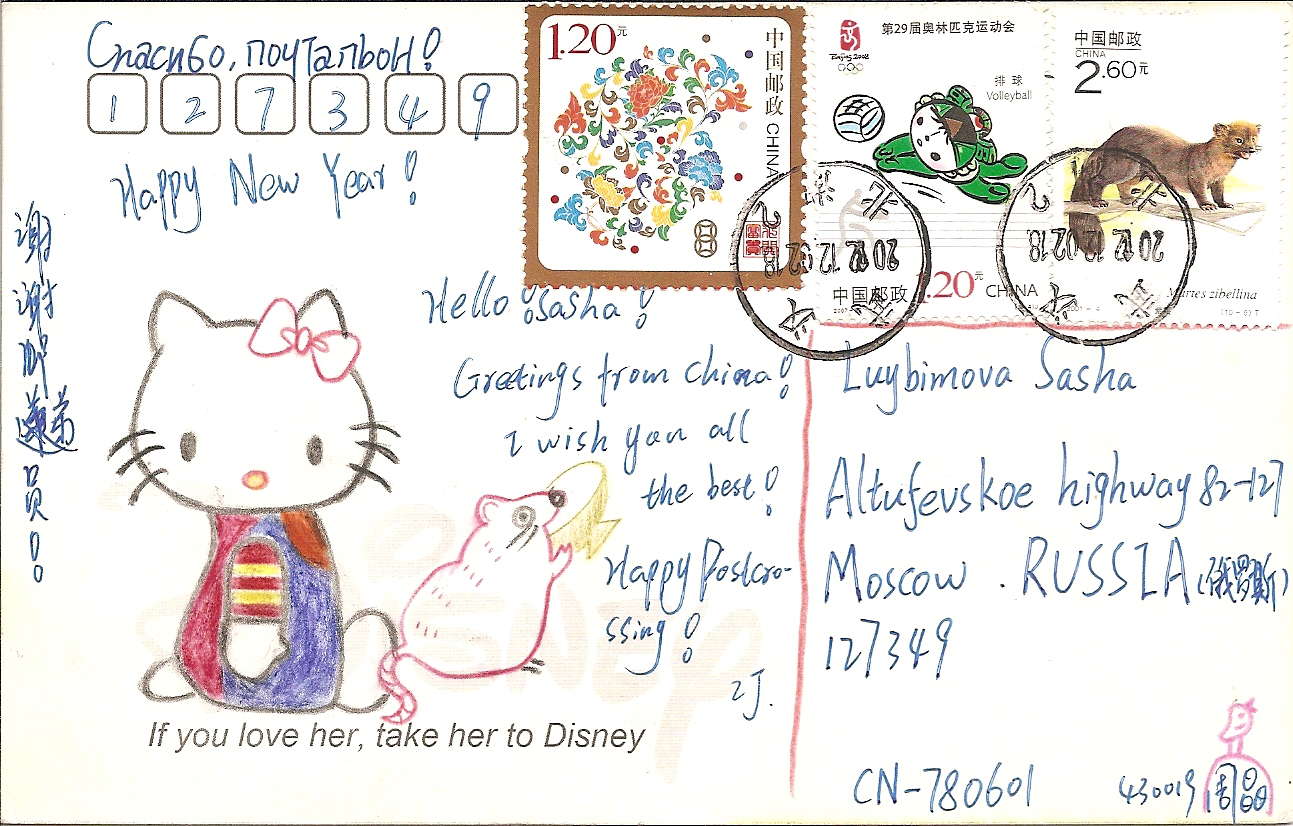 Спасибо, почтальон!
1 2 7 3 4 9
Happy New Year!
谢谢邮递员!
Hello! Sasha!
Greetings from China!
I wish you all
the best!
Happy Postcro-
ssing!
ZJ.
If you love her, take her to Disney
1.20元
中国邮政 CHINA
第29届奥林匹克运动会
Beijing 2008
排球
Volleyball
中国邮政 1.20元 CHINA
2007
中国邮政
CHINA
2.60元
Martes zibellina
2001-4
(10-9)T
2012.12.02.18
2012.12.02.18
Luybimova Sasha
Altufevskoe highway 82-127
Moscow. RUSSIA (俄罗斯)
127349
CN-780601
430019 周晶